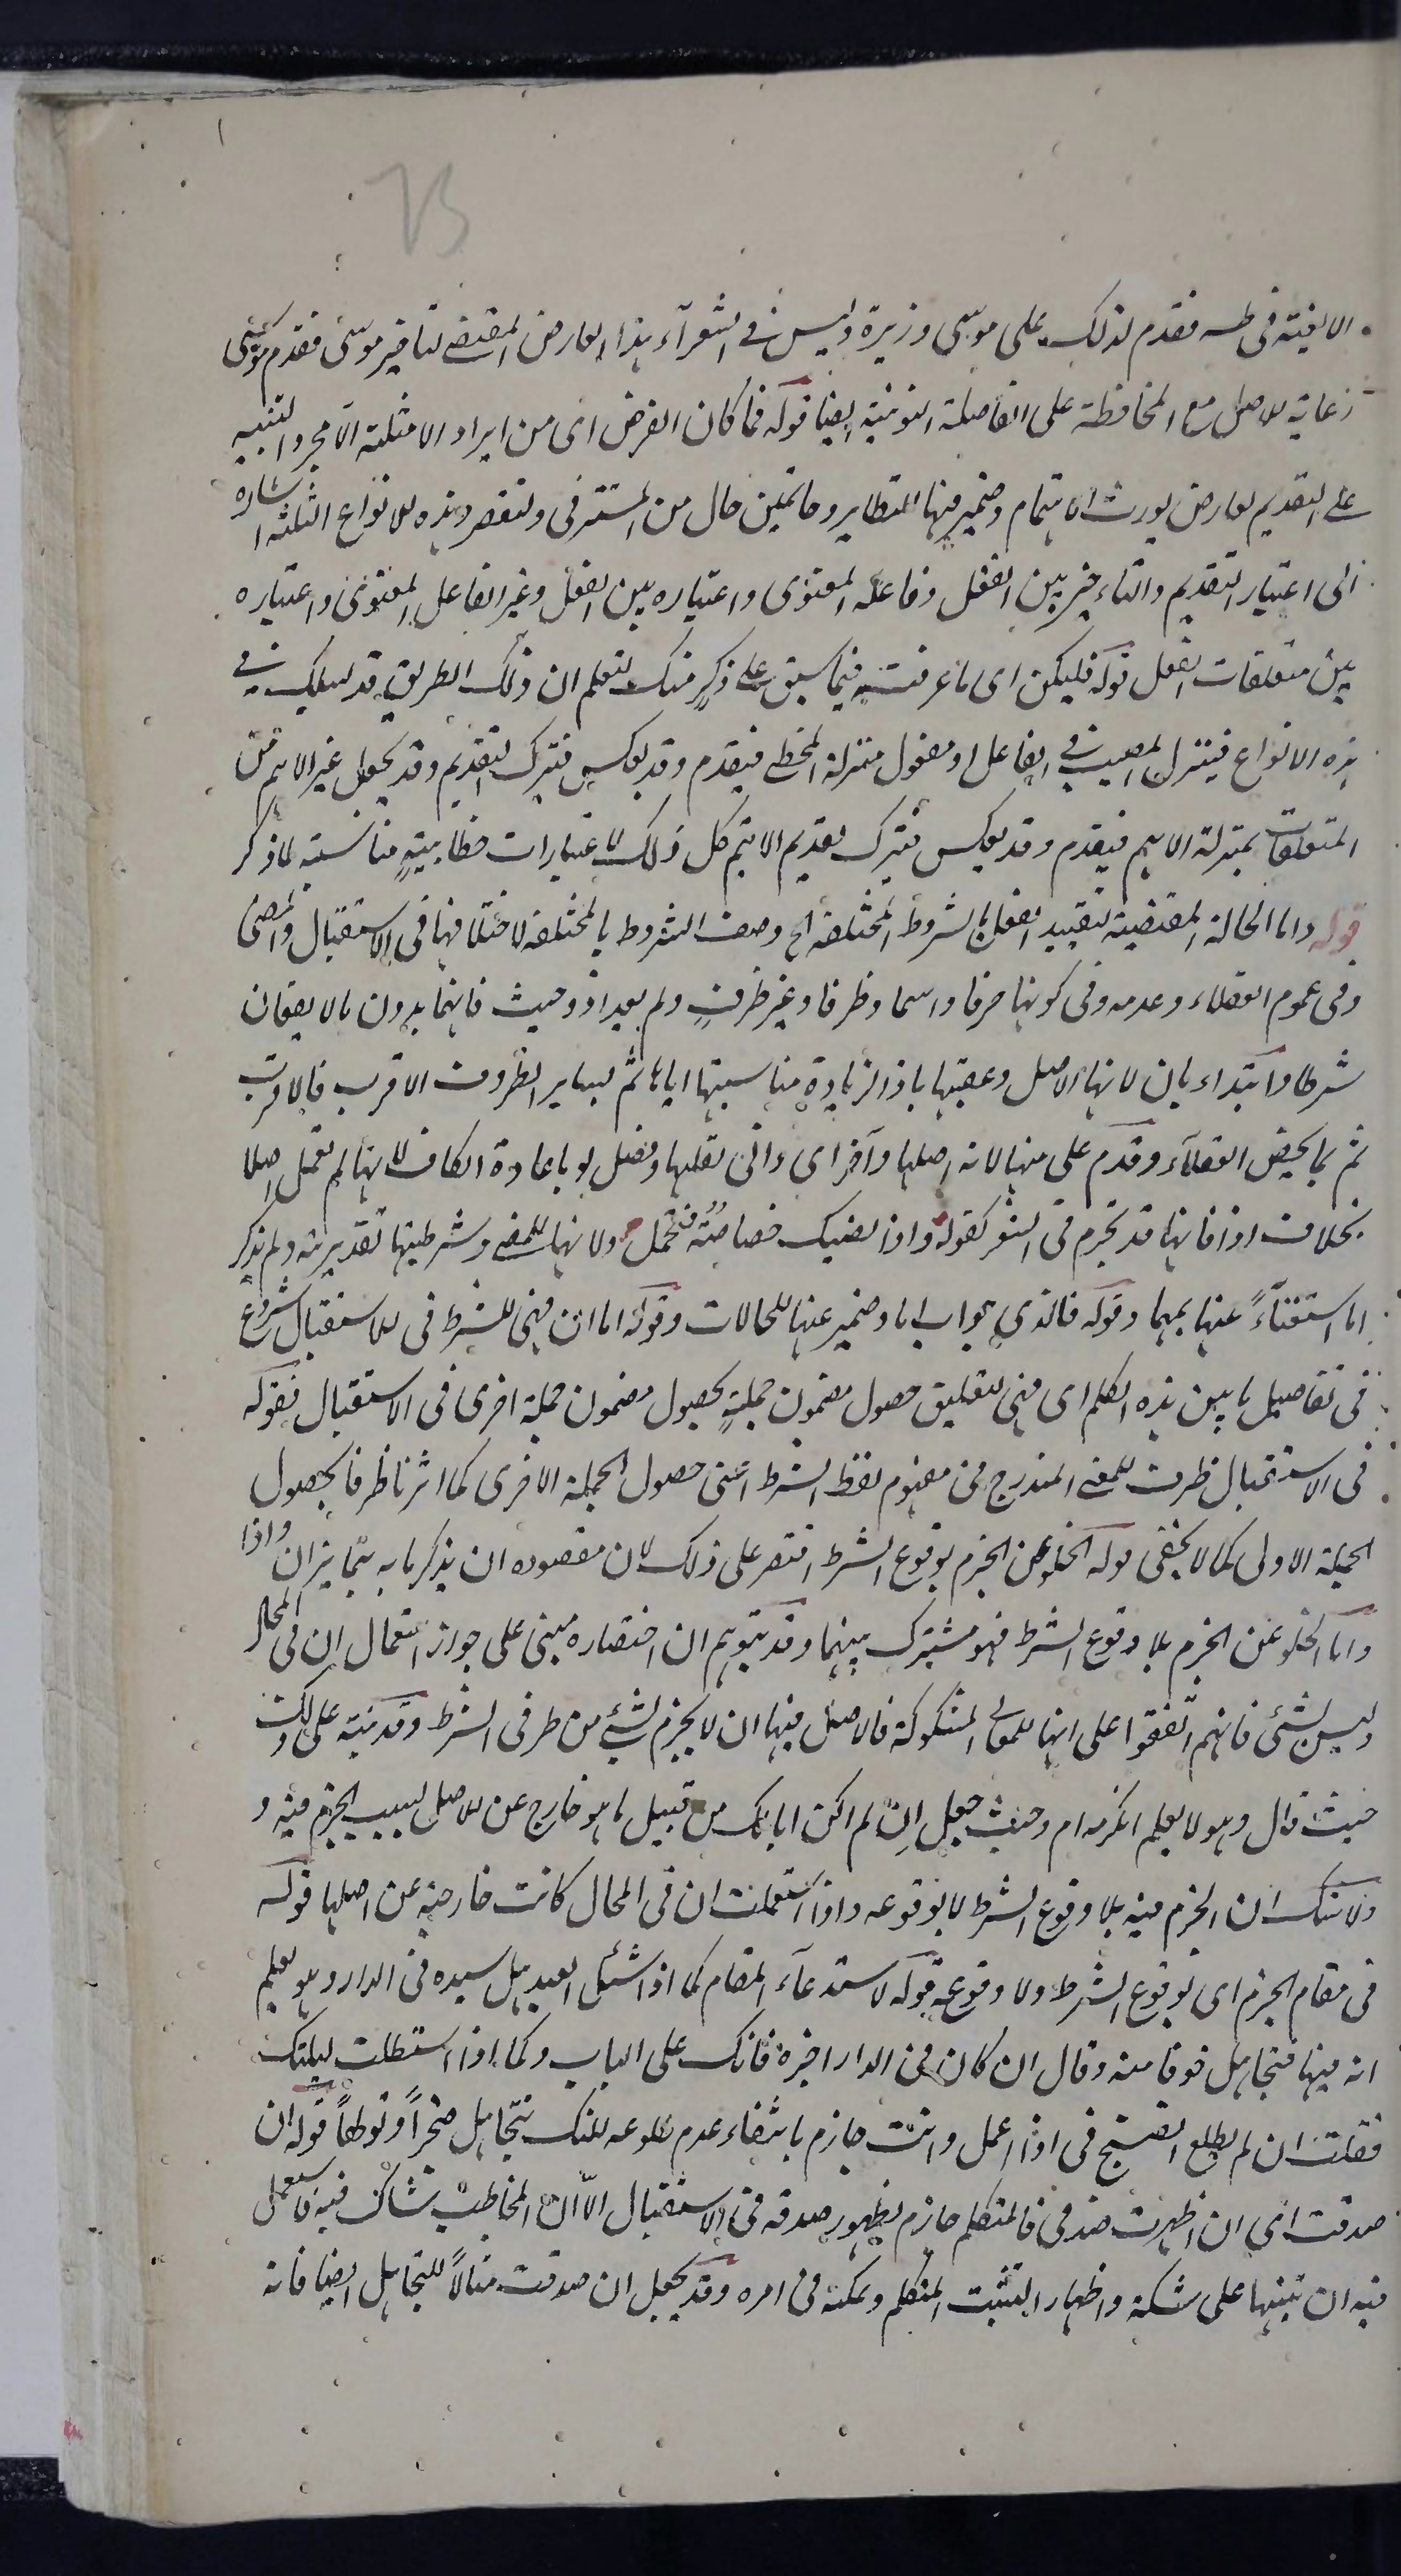 الالفية فى طه فقدم لذلك على موسى وزيره وليس فى الشعرآء هذا العارض المقتضى لتاخير موسى فقدم موسى
رعاية للاصل مع المحافظة على الفاصلة النونية ايضا قوله فما كان الغرض اى من ايراد الامثلة الا مجرد التنبيه
على التقديم لعارض يورث الاهتمام وضمير فيها للنظاير وحاتمين حال من المستتر فى ولنقصر وهذه الانواع الثلثة اشاره
الى اعتبار التقديم والتاءخير بين الفعل وفاعله المعنوى واعتباره بين الفعل وغير الفاعل المعنوى واعتباره
بين متعلقات الفعل قوله فليكن اى ما عرفت فيما سبق على ذكر منك لتعلم ان ذلك الطريق قد يسلك فى
هذه الانواع فينزل المصيب فى الفاعل او مفعول منزلة المخطى فيقدم وقد يعكس فيترك التقديم وقد يجعل غير الاهم من
المتعلقات بمنزلة الاهم فيقدم وقد يعكس فيترك تقديم الاهم كل ذلك لاعتبارات خطابية مناسبة لما ذكر
قوله واما الحالة المقتضية لتقييد الفعل بالشروط المختلفة الخ وصف الشروط بالمختلفة لاختلافها فى الاستقبال والمضى
وفى عموم العقلاء وعدمه وفى كونها حرفا واسما وظرفا وغير ظرف ولم يعد اذ وحيث فانهما بدون ما لا يقعان
شرطا وابتداء بان لانها الاصل وعقبها باذا لزيادة مناسبتها اياها ثم بساير الظروف الاقرب فالاقرب
ثم بما يخص العقلآء وقدم على منها لانه اصلها وآخر اى وانى لقلتها وفصل لو باعادة الكاف لانها لم تعمل اصلا
بخلاف اذا فانها قد تجزم فى الشعر كقوله واذا تصبك خصاصة فتحمل ولانها للمضى وشرطيتها تقديرية ولم يذكر
اما استغنآءً عنها بمهما وقوله فالذي جواب اما وضمير عنها للحالات وقوله اما ان فهى للشرط فى الاستقبال شروع
فى تفاصيل ما بين هذه الكلم اى فهى لتعليق حصول مضمون جملة بحصول مضمون جملة اخرى فى الاستقبال فقوله
فى الاستقبال ظرف للمعنى المندرج فى مفهوم لفظ الشرط اعنى حصول الجملة الاخرى كما اثرنا ظرفا لحصول
الجملة الاولى كما لا يخفى قوله الخلو عن الجزم بوقوع الشرط اقتصر على ذلك لان مقصوده ان يذكر ما به يتمايز ان واذا
واما الخلو عن الجزم بلا وقوع الشرط فهو مشترك بينهما وقد يتوهم ان اختصاره مبنى على جواز استعمال ان فى المحال
وليس بشئ فانهم اتفقوا على انها للمعانى المشكوكة فالاصل فيها ان لا يجزم بشئ من طرفى الشرط وقد نبه على ذلك
حيث قال وهو لا يعلم اتكرمه ام وحيث جعل ان لم اكن اباك من قبيل ما هو خارج عن الاصل بسبب الجزم فيه و
ولا شك ان الجزم فيه بلا وقوع الشرط لا بوقوعه واذا استعملت ان فى المحال كانت خارجة عن اصلها قوله
فى مقام الجزم اى بوقوع الشرط ولا وقوعه قوله لاستدعآء المقام كما اذا سئل العبد هل سيده فى الدار وهو يعلم
انه فيها فتجاهل خوفا منه وقال ان كان فى الدار اخبره فانك على الباب وكما اذا استطلت ليلتك
فقلت ان لم يطلع الصبح فى اذا اعمل وانت جازم بانتفاء عدم طلوعه لكنك تتجاهل ضجراً وتولهاً قوله ان
صدقت اى ان اظهرت صدقى فالمتكلم جازم بظهور صدقه فى الاستقبال الا ان المخاطب شاك فيه فاستعمل
فيه ان تنبيها على شكه واظهار التثبت المتكلم وتمكنه فى امره وقد يجعل ان صدقت مثالاً للتجاهل ايضا فانه